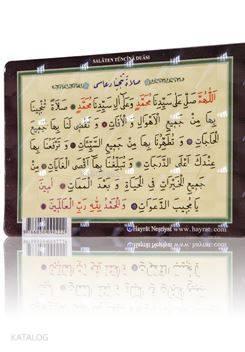 SALÂTEN TÜNCÎNÂ DUÂSI
اَللّٰهُمَّ صَلِّ عَلٰى سَيِّدِنَا مُحَمَّدٍ وَعَلٰى اٰلِ سَيِّدِنَا مُحَمَّدٍ صَلَاةً تُنْجِينَا
بِهَا مِنْ جَمِيعِ الْاَهْوَالِ وَالْاٰفَاتِ وَتَقْضِى لَنَا بِهَا جَمِيعَ
الْحَاجَاتِ وَتُطَهِّرُنَا بِهَا مِنْ جَمِيعِ السَّيِّئَاتِ وَتَرْفَعُنَا بِهَا
عِنْدَكَ اَعْلَى الدَّرَجَاتِ وَتُبَلِّغُنَا بِهَا اَقْصَى الْغَايَاتِ مِنْ
جَمِيعِ الْخَيْرَاتِ فِى الْحَيَاةِ وَبَعْدَ الْمَمَاتِ اٰمِينَ
يَا مُجِيبَ الدَّعَوَاتِ وَالْحَمْدُ لِلّٰهِ رَبِّ الْعَالَمِينَ
Hayrât Neşriyat www.hayrat.com
KATALOG